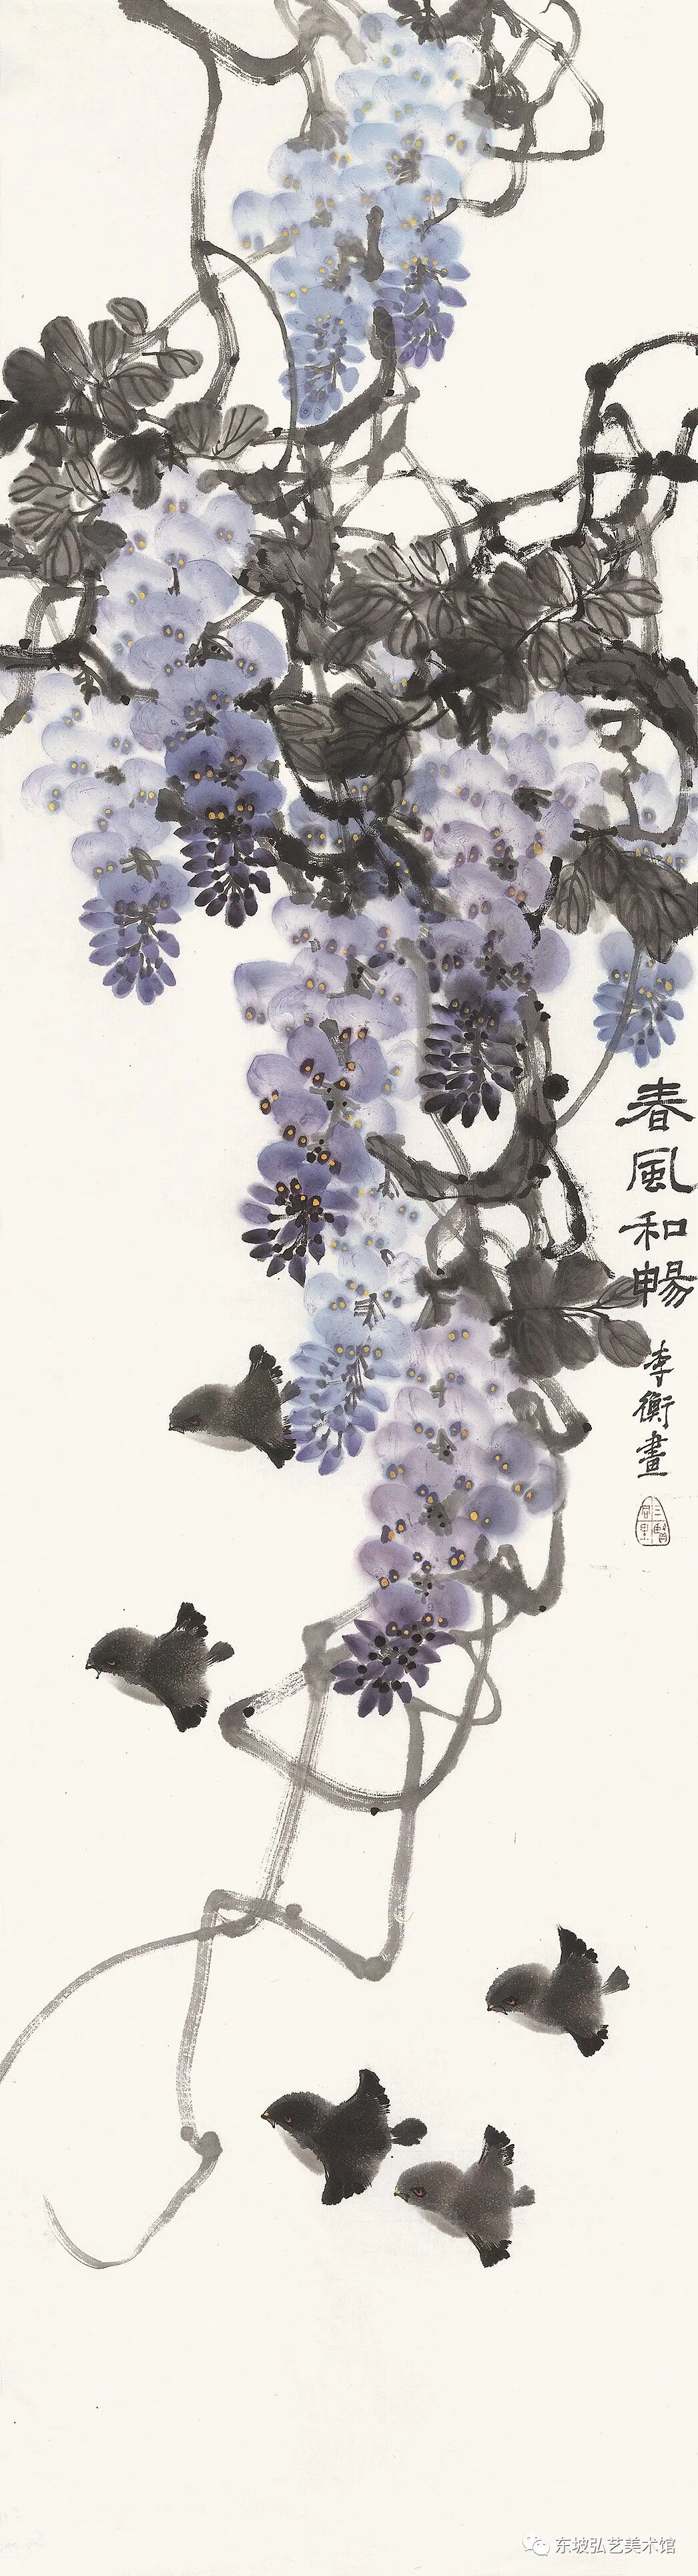 春風和暢
李衡畫
东坡弘艺美术馆